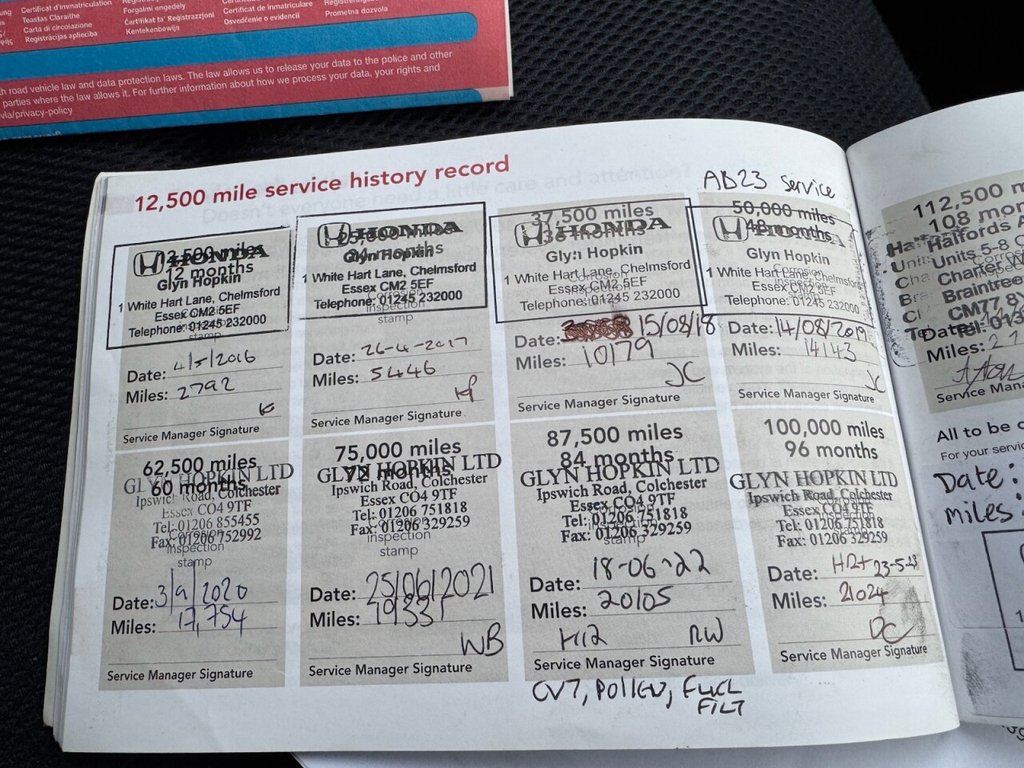 Certificat d'immatriculation
Teastas Cláraithe
Carta di circolazione
Reģistrācijas apliecība
Forgalmi engedély
Ċertifikat ta' Reġistrazzjoni
Kentekenbewijs
Certificat de inmatriculare
Osvedčenie o evidencii
Prometna dozvola
road vehicle law and data protection laws. The law allows us to release your data to the police and other
parties where the law allows it. For further information about how we process your data, your rights and
vla/privacy-policy
12,500 mile service history record
AB23 Service
12,500 miles
12 months
HONDA
Glyn Hopkin
1 White Hart Lane, Chelmsford
Essex CM2 5EF
Telephone: 01245 232000
stamp
Date: 4/5/2016
Miles: 2792
Service Manager Signature
HONDA
Glyn Hopkin
1 White Hart Lane, Chelmsford
Essex CM2 5EF
Telephone: 01245 232000
inspection
stamp
Date: 26-4-2017
Miles: 5446
Service Manager Signature
37,500 miles
HONDA
Glyn Hopkin
1 White Hart Lane, Chelmsford
Essex CM2 5EF
Telephone: 01245 232000
Date: 15/08/18
Miles: 10179
JC
Service Manager Signature
50,000 miles
48 months
HONDA
Glyn Hopkin
1 White Hart Lane, Chelmsford
Essex CM2 5EF
Telephone: 01245 232000
Date: 14/08/2019
Miles: 14143
JC
Service Manager Signature
62,500 miles
60 months
GLYN HOPKIN LTD
Ipswich Road, Colchester
Essex CO4 9TF
Tel: 01206 855455
Fax: 01206 752992
inspection
stamp
Date: 3/9/2020
Miles: 17,754
Service Manager Signature
75,000 miles
72 months
GLYN HOPKIN LTD
Ipswich Road, Colchester
Essex CO4 9TF
Tel: 01206 751818
Fax: 01206 329259
inspection
stamp
Date: 25/06/2021
Miles: 19331
WB
Service Manager Signature
87,500 miles
84 months
GLYN HOPKIN LTD
Ipswich Road, Colchester
Essex CO4 9TF
Tel: 01206 751818
Fax: 01206 329259
stamp
Date: 18-06-22
Miles: 20105
RW
Service Manager Signature
CVT, POllEN, FUEL
FILT
100,000 miles
96 months
GLYN HOPKIN LTD
Ipswich Road, Colchester
Essex CO4 9TF
Tel: 01206 751818
Fax: 01206 329259
Date: 23-5-23
Miles: 21024
DC
Service Manager Signature
112,500 m
108 mon
Halfords A
Units 5-8 C
Charter W
Braintree
CM77 8Y
Date:
Miles:
Service Man
All to be c
For your servic
Date:
miles: